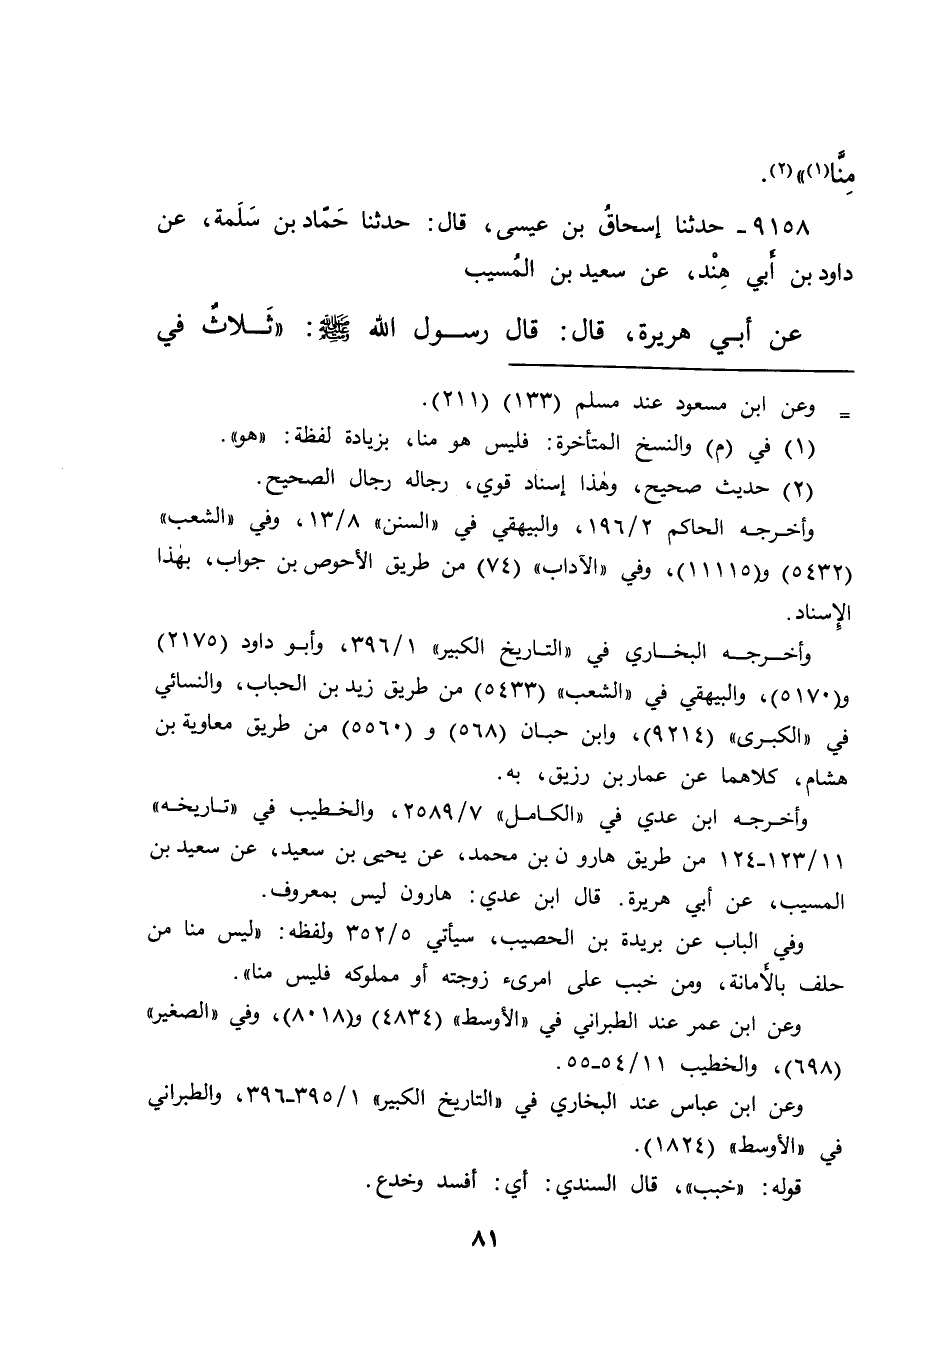 مِنَّا(١)»(٢).
٩١٥٨ـ حدثنا إسحاقُ بن عيسى، قال: حدثنا حَمّاد بن سَلَمة، عن
داود بن أَبي هِنْد، عن سعيد بن المُسيب
عن أبي هريرة، قال: قال رسول الله ﷺ: «ثَلاثٌ في
= وعن ابن مسعود عند مسلم (١٣٣) (٢١١).
(١) في (م) والنسخ المتأخرة: فليس هو منا، بزيادة لفظة: «هو».
(٢) حديث صحيح، وهٰذا إسناد قوي، رجاله رجال الصحيح.
وأخرجه الحاكم ١٩٦/٢، والبيهقي في «السنن» ١٣/٨، وفي «الشعب»
(٥٤٣٢) و(١١١١٥)، وفي «الآداب» (٧٤) من طريق الأحوص بن جواب، بهٰذا
الإسناد.
وأخرجه البخاري في «التاريخ الكبير» ٣٩٦/١، وأبو داود (٢١٧٥)
و(٥١٧٠)، والبيهقي في «الشعب» (٥٤٣٣) من طريق زيد بن الحباب، والنسائي
في «الكبرى» (٩٢١٤)، وابن حبان (٥٦٨) و (٥٥٦٠) من طريق معاوية بن
هشام، كلاهما عن عمار بن رزيق، به.
وأخرجه ابن عدي في «الكامل» ٢٥٨٩/٧، والخطيب في «تاريخه»
١٢٣/١١ـ١٢٤ من طريق هارو ن بن محمد، عن يحيى بن سعيد، عن سعيد بن
المسيب، عن أبي هريرة. قال ابن عدي: هارون ليس بمعروف.
وفي الباب عن بريدة بن الحصيب، سيأتي ٣٥٢/٥ ولفظه: «ليس منا من
حلف بالأَمانة، ومن خبب على امرىء زوجته أو مملوكه فليس منا».
وعن ابن عمر عند الطبراني في «الأوسط» (٤٨٣٤) و(٨٠١٨)، وفي «الصغير»
(٦٩٨)، والخطيب ٥٤/١١ـ٥٥.
وعن ابن عباس عند البخاري في «التاريخ الكبير» ٣٩٥/١ـ٣٩٦، والطبراني
في «الأوسط» (١٨٢٤).
قوله: «خبب»، قال السندي: أي: أفسد وخدع.
٨١